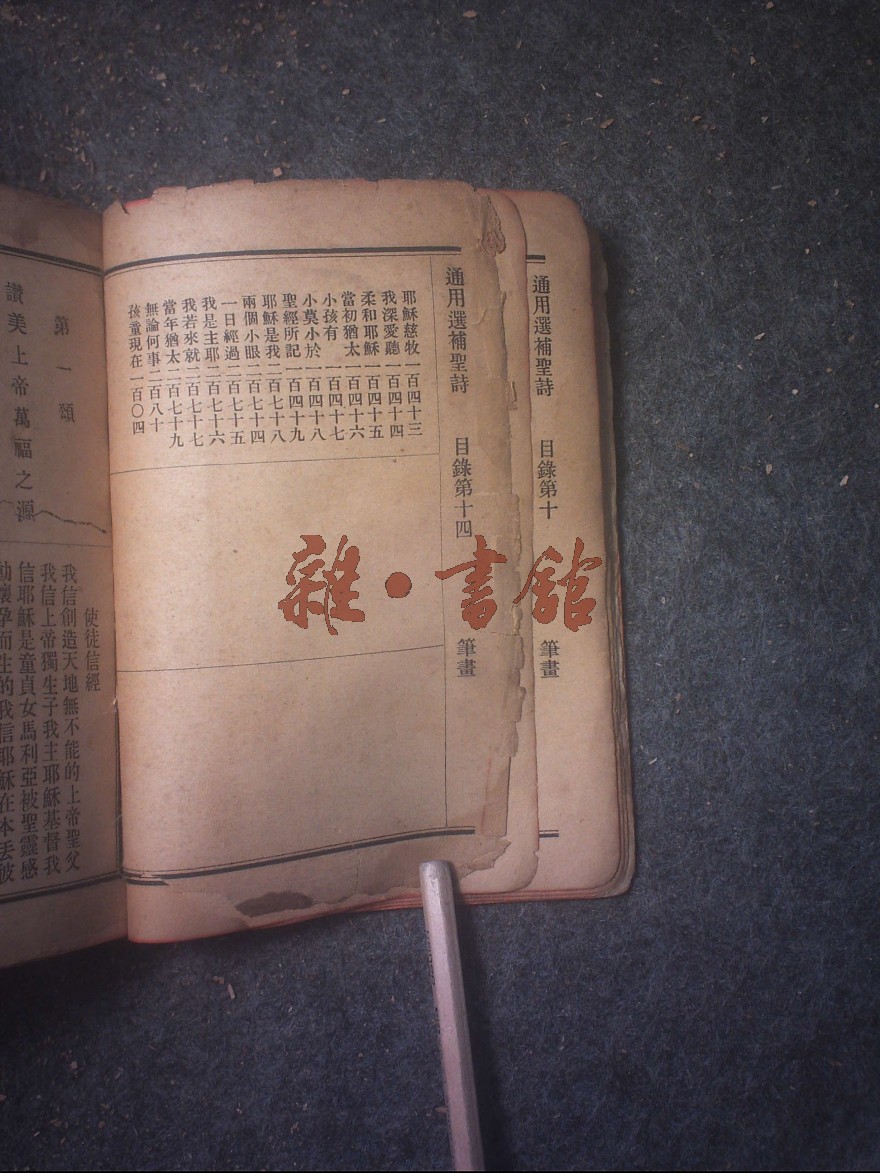 通用選補聖詩 目錄第十 筆畫
通用選補聖詩 目錄第十四 筆畫
耶穌慈牧 一百四十三
我深愛聽 一百四十四
柔和耶穌 一百四十五
當初猶太 一百四十六
小孩有 一百四十七
小莫小於 一百四十八
聖經所記 一百四十九
耶穌是我 二百七十八
兩個小眼 二百七十四
一日經過 二百七十五
我是主耶 二百七十六
我若來就 二百七十七
當年猶太 二百七十九
無論何事 二百八十
孩童現在 一百〇四
第一頌
讚美上帝萬福之源
使徒信經
我信創造天地無不能的上帝聖父
我信上帝獨生子我主耶穌基督我
信耶穌是童貞女馬利亞被聖靈感
動懷孕而生的我信耶穌在本丟彼
雜·書館